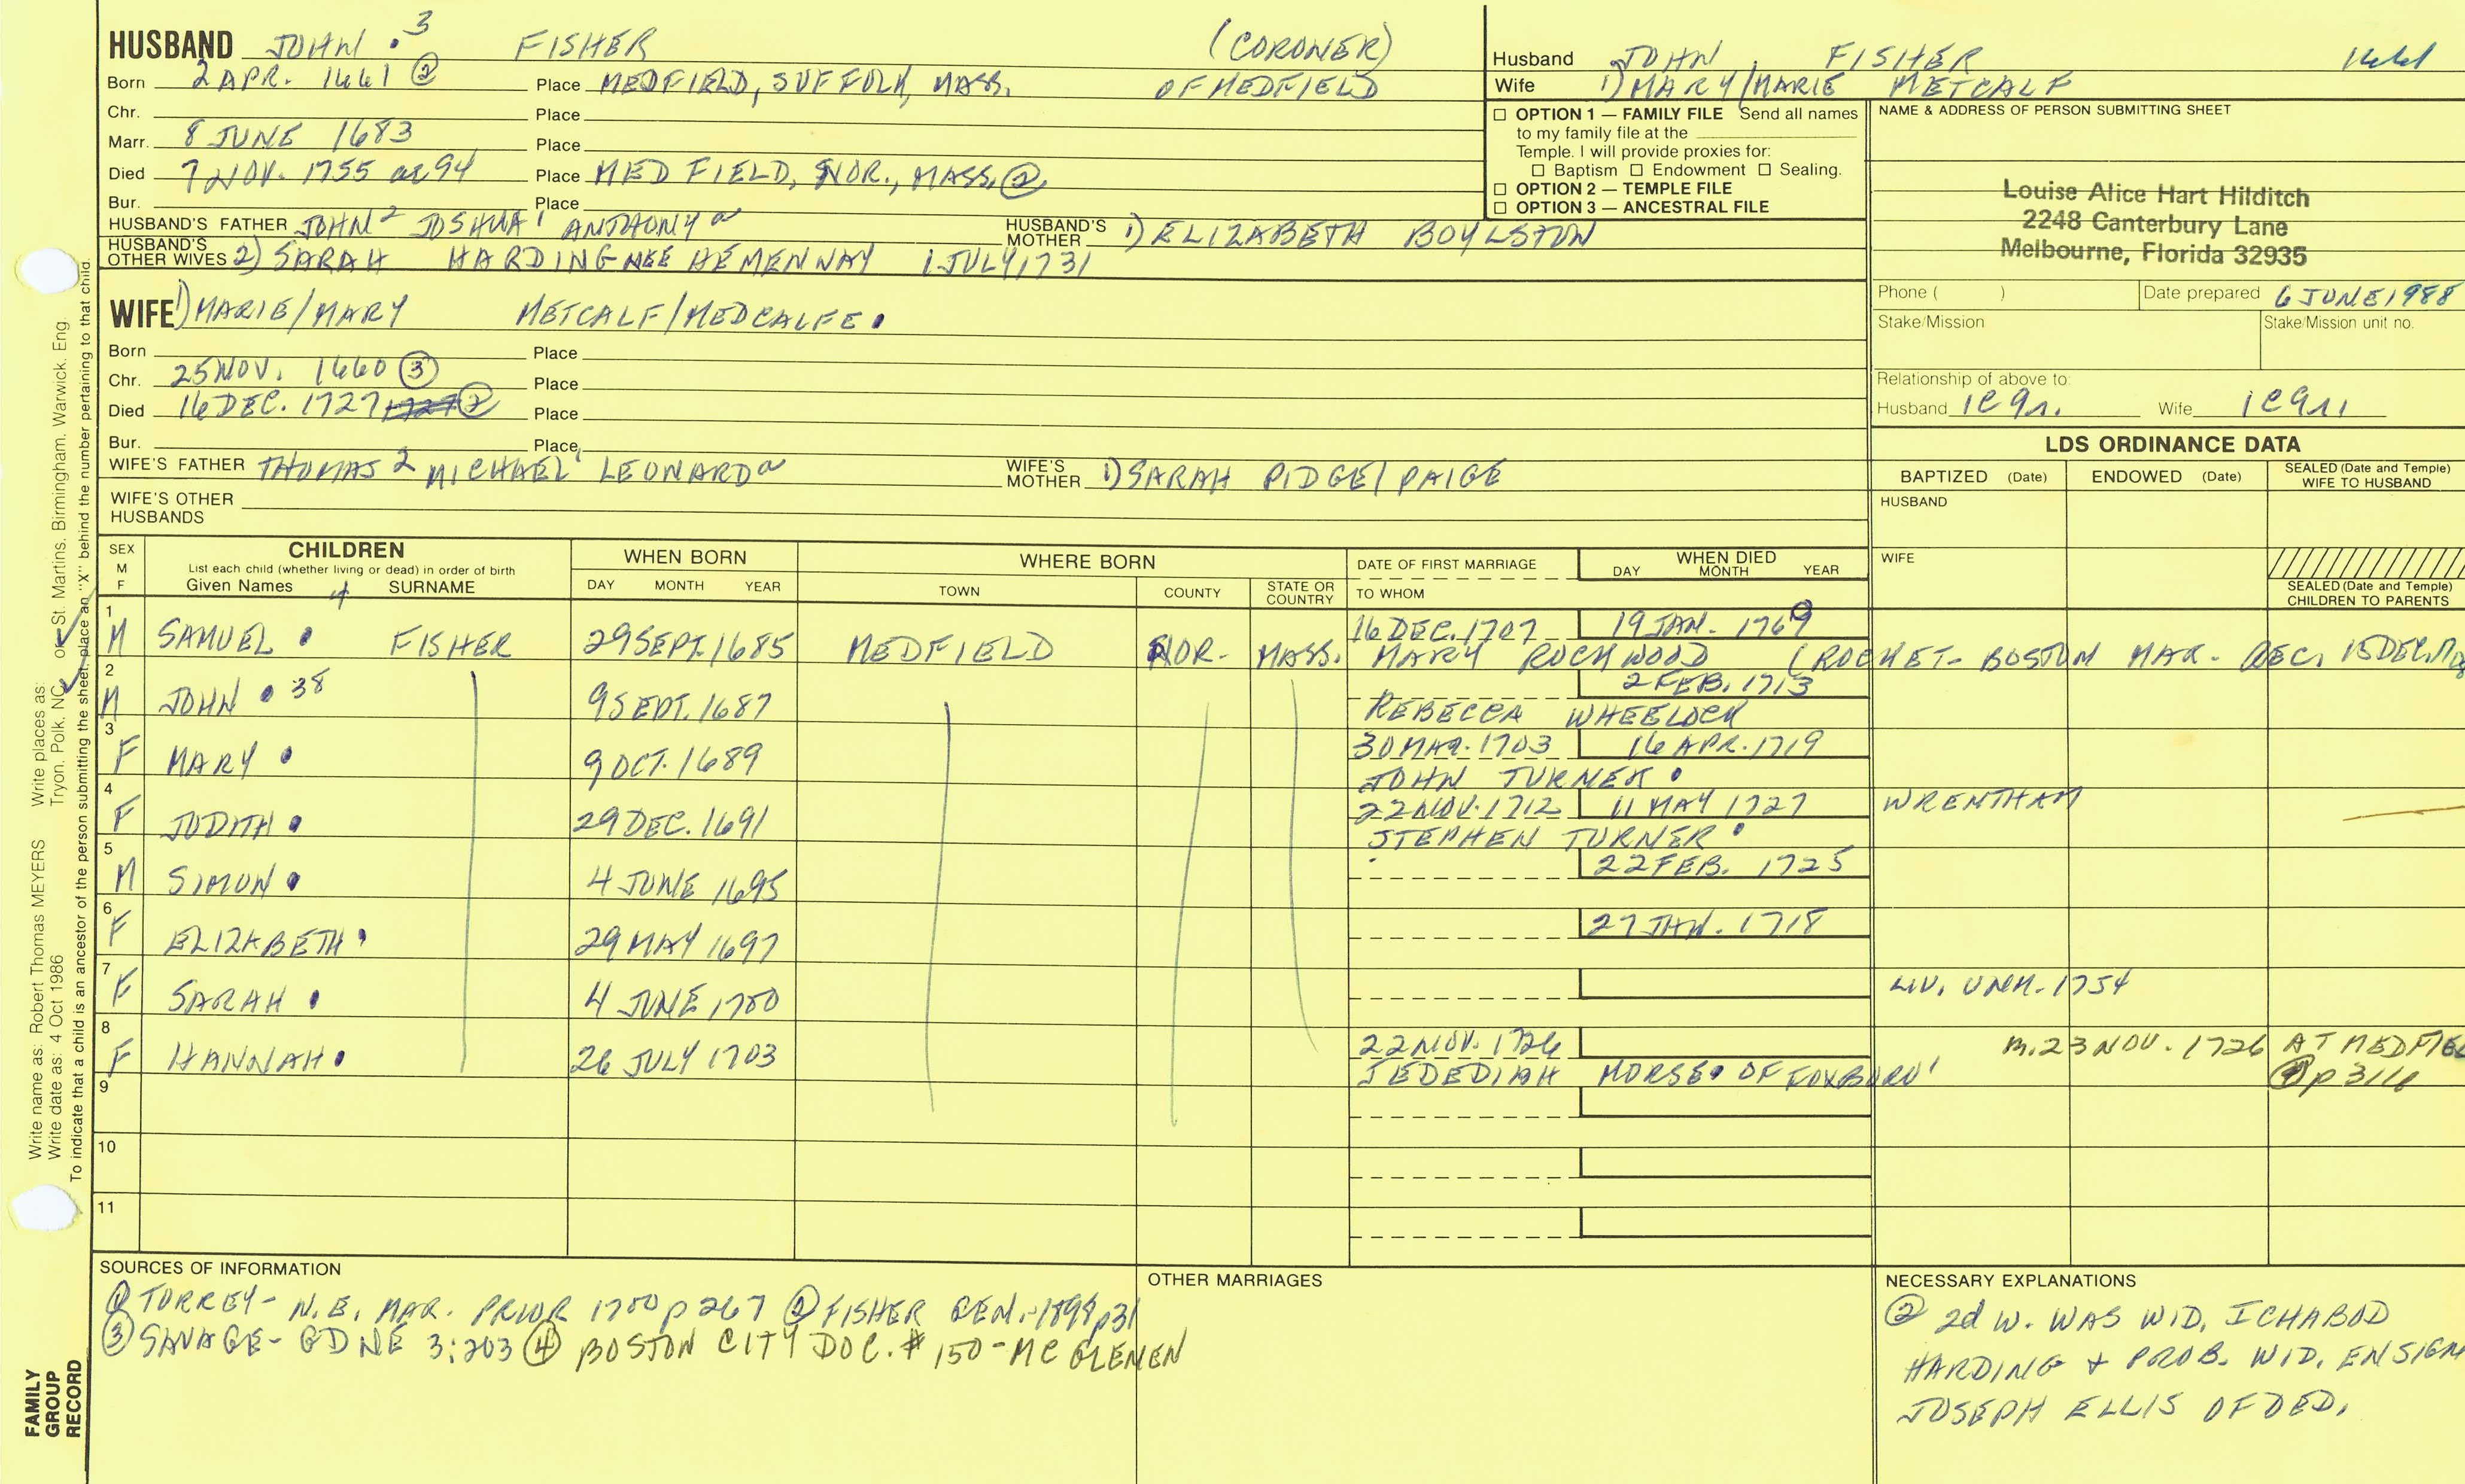 HUSBAND JOHN 3 FISHER (CORONER)
Born 2 APR. 1661 ② Place MEDFIELD, SUFFOLK, MASS. OF MEDFIELD
Chr. Place
Marr. 8 JUNE 1683 Place
Died 7 NOV. 1755 ae 94 Place MEDFIELD, NOR., MASS. ②
Bur. Place
HUSBAND'S FATHER JOHN 2 JOSHUA 1 ANTHONY a HUSBAND'S MOTHER 1) ELIZABETH BOYLSTON
HUSBAND'S OTHER WIVES 2) SARAH HARDING NEE HEMENWAY 1 JULY 1731
WIFE 1) MARIE/MARY METCALF/MEDCALFE.
Born Place
Chr. 25 NOV. 1660 ③ Place
Died 16 DEC. 1727 ② Place
Bur. Place
WIFE'S FATHER THOMAS 2 MICHAEL 1 LEONARD a WIFE'S MOTHER 1) SARAH PIDGE/PAIGE
WIFE'S OTHER HUSBANDS
Husband JOHN FISHER 1661
Wife 1) MARY/MARIE METCALF
☐ OPTION 1 — FAMILY FILE Send all names
to my family file at the
Temple. I will provide proxies for:
☐ Baptism ☐ Endowment ☐ Sealing.
☐ OPTION 2 — TEMPLE FILE
☐ OPTION 3 — ANCESTRAL FILE
NAME & ADDRESS OF PERSON SUBMITTING SHEET
Louise Alice Hart Hilditch
2248 Canterbury Lane
Melbourne, Florida 32935
Phone ( ) Date prepared 6 JUNE 1988
Stake/Mission Stake/Mission unit no.
Relationship of above to:
Husband Wife
LDS ORDINANCE DATA
BAPTIZED (Date) ENDOWED (Date) SEALED (Date and Temple) WIFE TO HUSBAND
HUSBAND
WIFE
SEALED (Date and Temple)
CHILDREN TO PARENTS
SEX M F CHILDREN WHEN BORN WHERE BORN DATE OF FIRST MARRIAGE WHEN DIED
List each child (whether living or dead) in order of birth
Given Names 4 SURNAME DAY MONTH YEAR TOWN COUNTY STATE OR COUNTRY TO WHOM DAY MONTH YEAR
1 M SAMUEL . FISHER 29 SEPT. 1685 MEDFIELD NOR. MASS. 16 DEC. 1707 19 JAN. 1769
MARY ROCKWOOD (ROCKET- BOSTON MAR. REC. 15 DEC.
2 M JOHN . 38 9 SEPT. 1687 2 FEB. 1713
REBECCA WHEELOCK
3 F MARY . 9 OCT. 1689 30 MAR. 1703 16 APR. 1719
JOHN TURNER .
4 F JUDITH . 29 DEC. 1691 22 NOV. 1712 11 MAY 1727 WRENTHAM
STEPHEN TURNER .
5 M SIMON . 4 JUNE 1695 22 FEB. 1725
6 F ELIZABETH . 29 MAY 1697 27 JAN. 1718
7 F SARAH . 4 JUNE 1700 LIV. UNM. 1754
8 F HANNAH . 26 JULY 1703 22 NOV. 1726 m. 23 NOV. 1726 AT MEDFIEL
JEDEDIAH MORSE. OF FOXBORO' ④ p 316
9
10
11
SOURCES OF INFORMATION
① TORREY- N.E. MAR. PRIOR 1700 p 267 ② FISHER GEN.-1898 p31
③ SAVAGE- GDNE 3:203 ④ BOSTON CITY DOC. # 150-MC GLENEN
OTHER MARRIAGES
NECESSARY EXPLANATIONS
② 2d W. WAS WID. ICHABOD
HARDING + PROB. WID. ENSIGN
JOSEPH ELLIS OF DED.
Write name as: Robert Thomas MEYERS Write places as: Tryon, Polk, NC or St. Martins, Birmingham, Warwick, Eng.
Write date as: 4 Oct 1986
To indicate that a child is an ancestor of the person submitting the sheet, place an "X" behind the number pertaining to that child.
FAMILY
GROUP
RECORD